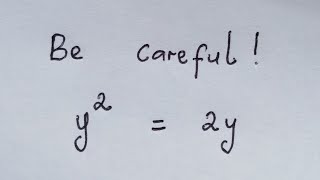 Be careful!
y² = 2y